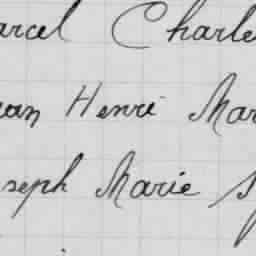 arcel Charle
ean Henri Mar
seph Marie